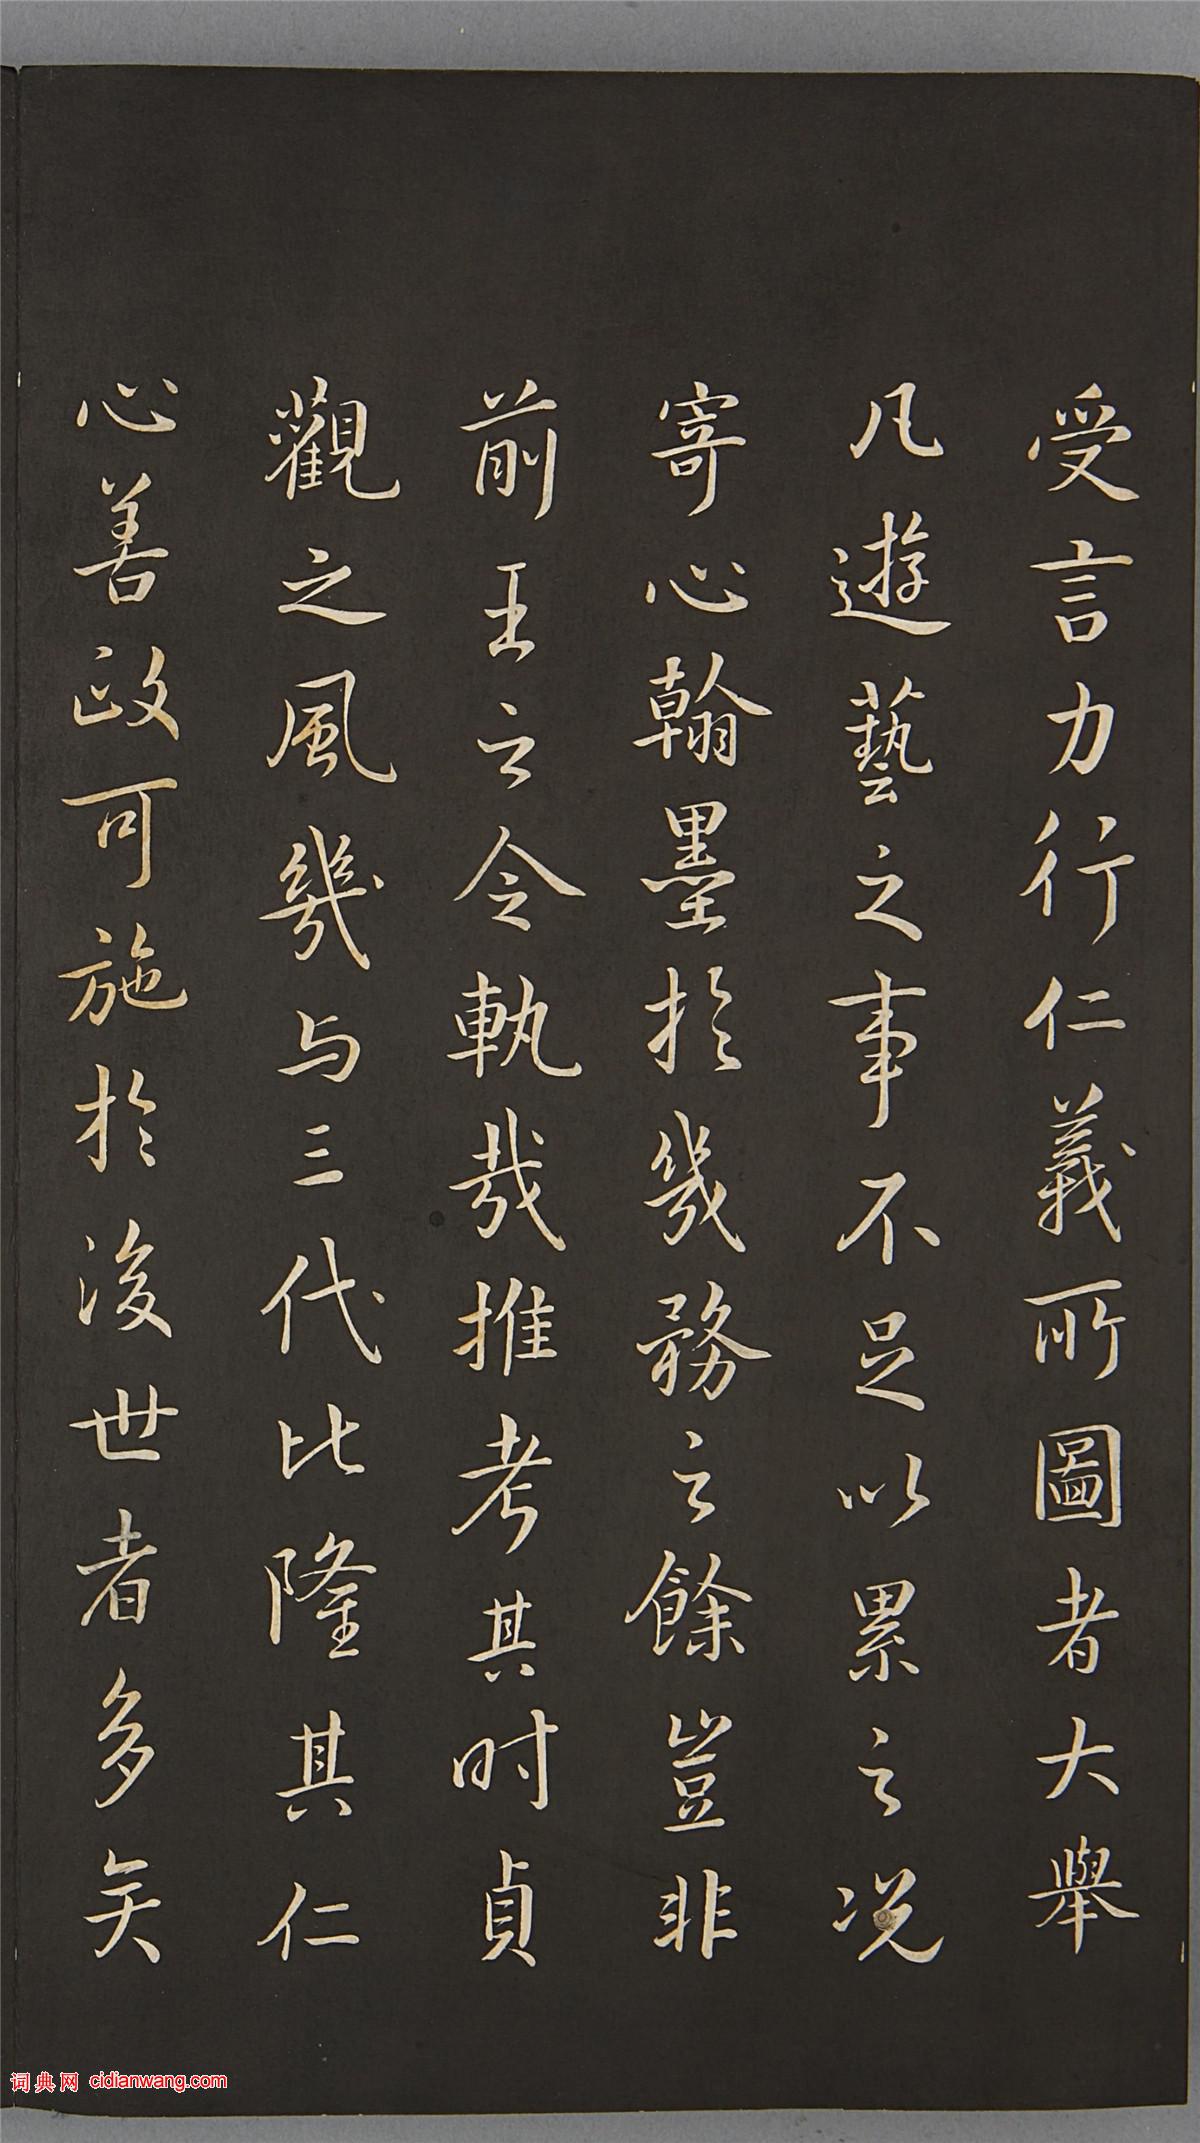 受言力行仁義所圖者大舉
凡遊藝之事不足以累之况
寄心翰墨於幾務之餘豈非
前王之令執哉推考其时貞
觀之風幾与三代比隆其仁
心善政可施於後世者多矣
词典网 cidianwang.com